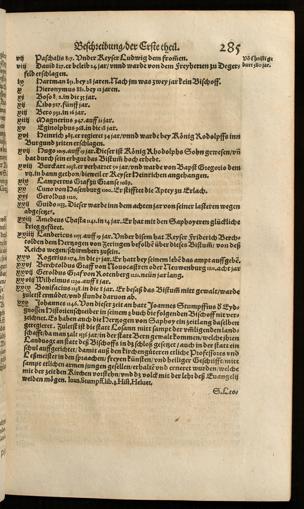 Beschreibung/der Erste theil. 285
vij Paschalis 857. Vnder Keyser Ludwig dem frommen. Vō Christi ge
viij Dauid 827. er beleib 24 jar/vnnd warde von den Freyherren zu Deger- burt 380 jar.
feld erschlagen.
ix Hartman 851. bey 28 jaren. Nach jm was zwey jar kein Bischoff.
x Hieronymus 881. bey 11 jaren.
xj Boso 892. in die 35 jar.
xij Libo 927. fünff jar.
xiij Bero 932. in 16 jar.
xiiij Magnerius 947. auff 21 jar.
xv Eginolphus 968. in die 18 jar.
xvj Henrich 985. er regiert 34 jar/vnnd warde bey König Rodolphs
Burgund zeiten erschlagen.
xvij Hugo 1019. auff 19 jar. Dieser ist König Rhodolphs Sohn gewesen/vn
hat durch sein erbgut das Bistum hoch erhebt.
xviij Burckart 1038. er verharret 50 jar/vnd ware von Bapst Gregorio dem
vij. in bann gethon/dieweil er Keyser Heinrichen angehangen.
xix Lampertus Graff zu
xx Cuno von Hasenburg Er stifftet die Aptey zu Erlach.
xxj Geroldus
xxij Guido 1135. Dieser ware inn dem achten jar von seiner lasteren wegen
abgesetzt.
xxiij Amedeus in 14. jar. Er hat mit den Saphoyeren glückliche
krieg gefürt.
xxiiij Landricus auff 19 jar. Vnder disem hat Keyser Friderich Berch-
tolden dem Hertzogen von Zeringen befolhē über dieses Bistum/von deß
Reichs wegen
xxv Rogerius 1174. in die 37 jar. Er hatt bey seinem lebē das ampt auffgebē.
xxvj Berchtoldus Graff von Nouocastro oder Neuwenburg acht jar
xxvij Geroldus Graff von Rotenberg neün jar lang.
xxviij Wilhelmus auff 8 jar.
xxix Bonifacius in die 8 jar. Er besaß das Bistum mitt gewalt/warde
zuletst ermördt/vnd stunde daruon ab.
xxx Johannes 1240. Von dieser zeit an hatt Joannes Stumpffius d Eyd-
gnossen Historienschreiber in seinem 9 buch die folgenden Bischoff mit ver-
zeichnet. Er haben auch die Hertzogen von Saphoy ein zeitlang daselbst
geregieret. Zuletst ist die statt Losann mitt sampt der vmligenden landt-
schafft da man zalt 1536 jar/in der statt Bern gewalt kommen/welche jren
Landuogt an statt des Bischoffs in dz schloß gesetzet/auch in der statt ein
schul auffgerichtet/damit auß den kirchengüteren etliche Professores vnd
Leßmeister in den spraachen/freyen künsten/vnd heiliger Geschrifft/mitt
sampt etlichen armen jungen gesellen/erhaltē vnd erneret wurden/welche
mit der zeit den Kirchen vorstehn/vnd dz volck mit der lehr deß Euangelij
weiden mögen. Ioan. Stumpff. lib. 4. Hist. Heluet.
S. Leo-